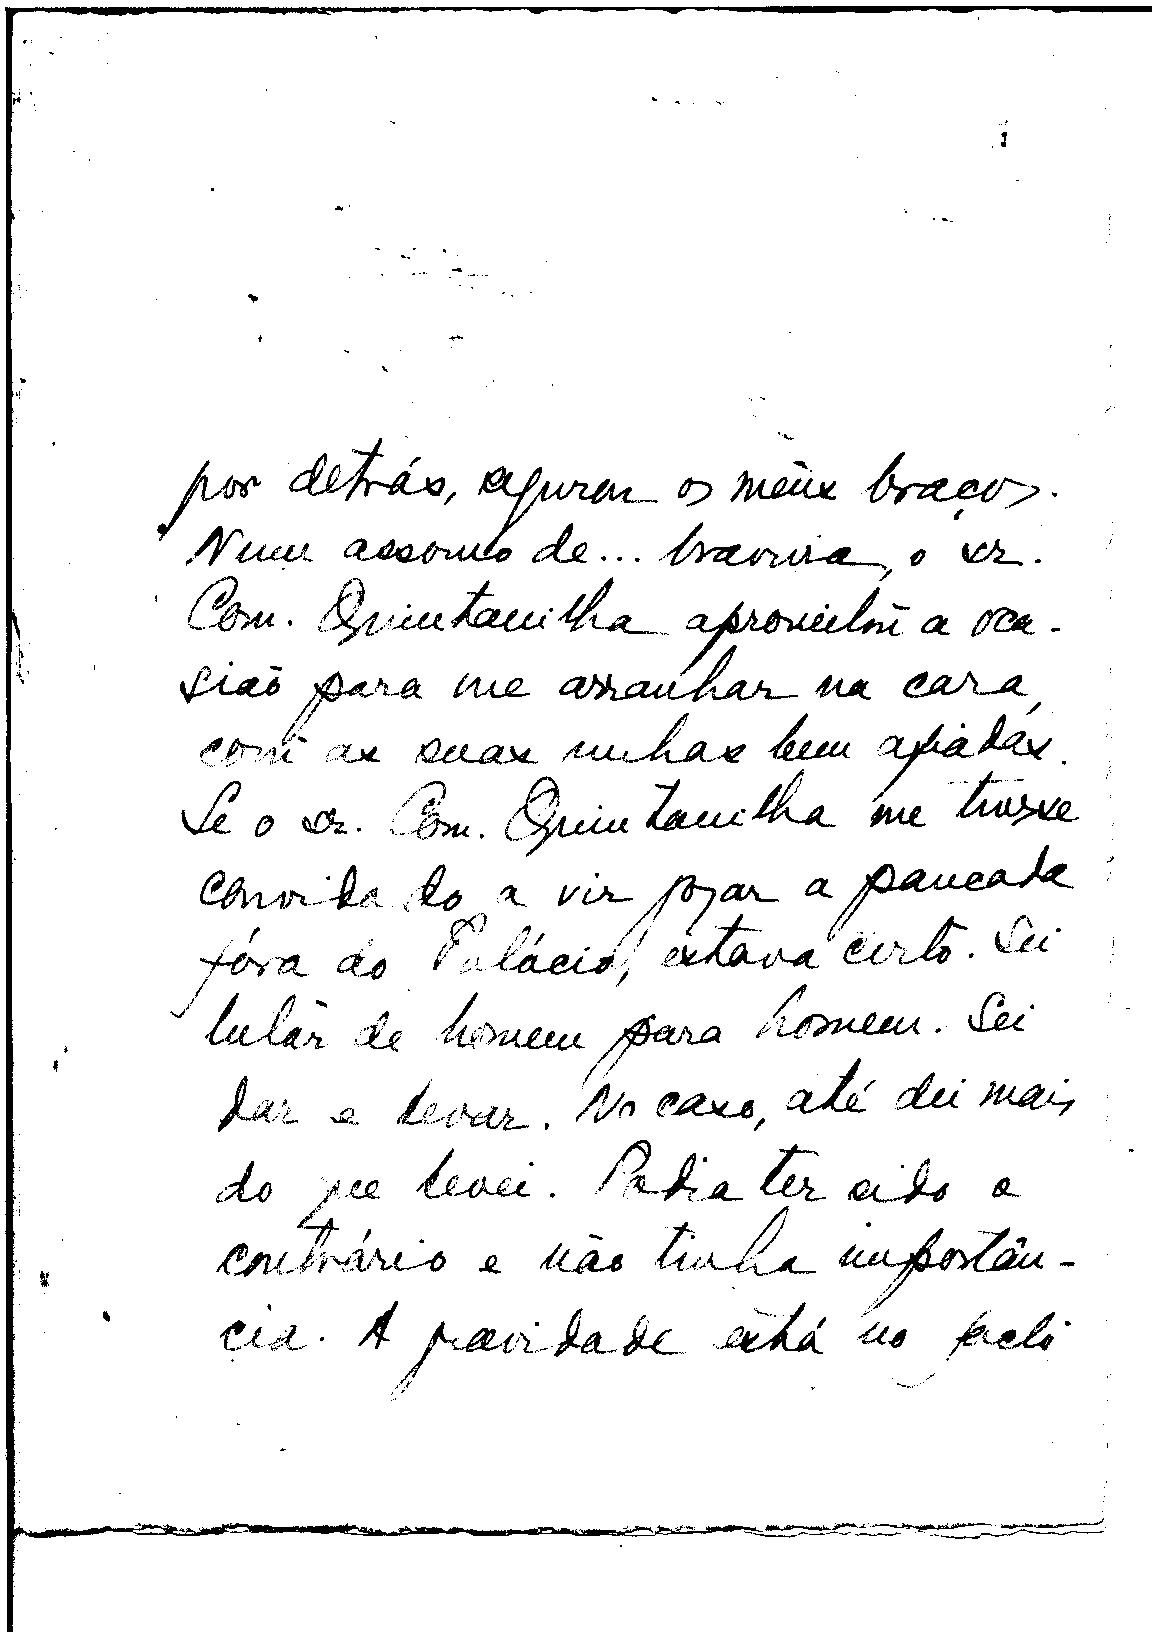 por detrás, segurou os meus braços.
Num assomo de... bravura, o sr.
Com. Quintanilha aproveitou a oca-
sião para me arranhar na cara,
com as suas unhas bem afiadas.
Se o sr. Com. Quintanilha me tivesse
convidado a vir jogar a pancada
fóra do Palácio, estava certo. Sei
lutar de homem para homem. Sei
dar e levar. No caso, até dei mais
do que levei. Podia ter sido o
contrário e não tinha importân-
cia. A gravidade está no facto